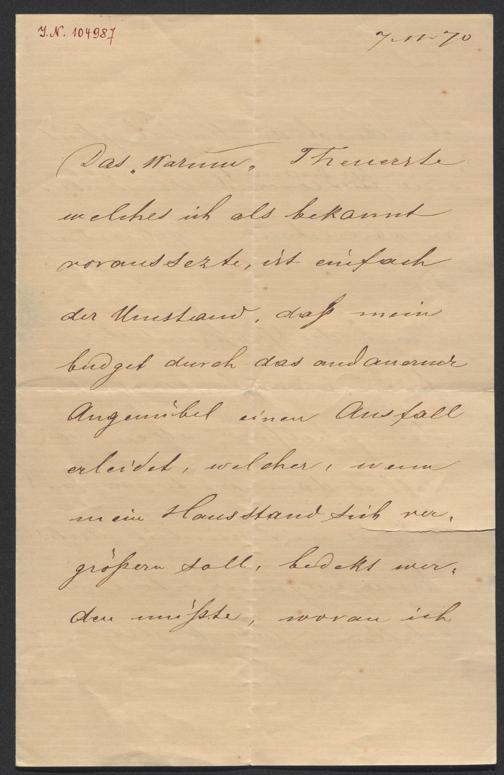 J.N. 104987
7-11-70
Das „Warum“ Theuerste
welches ich als bekannt
voraussezte, ist einfach
der Umstand, daß mein
budget durch das andauernde
Augenübel einen Ausfall
erleidet, welcher, wenn
mein Hausstand sich ver,
größern soll, bedekt wer,
den müßte, woran ich